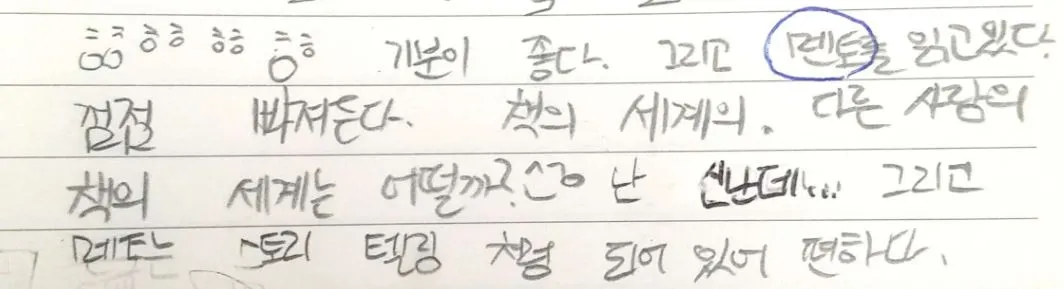 흐흐흫흫 흐흫 흐흫 기분이 좋다. 그리고 멘토를 읽고있다.
점점 빠져든다. 책의 세계의. 다른 사람의
책의 세계는 어떨까? 난 신난데... 그리고
멘토는 스토리 텔링 처럼 되어 있어 편하다.